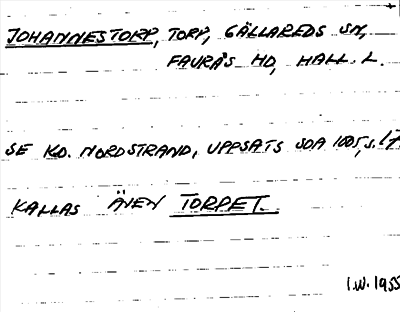 JOHANNESTORP, TORP, GÄLLAREDS SN,
FAURÅS HD, HALL. L.
SE KD. NORDSTRAND, UPPSATS SOA 1005, s.
KALLAS ÄVEN TORPET.
I.W. 1955